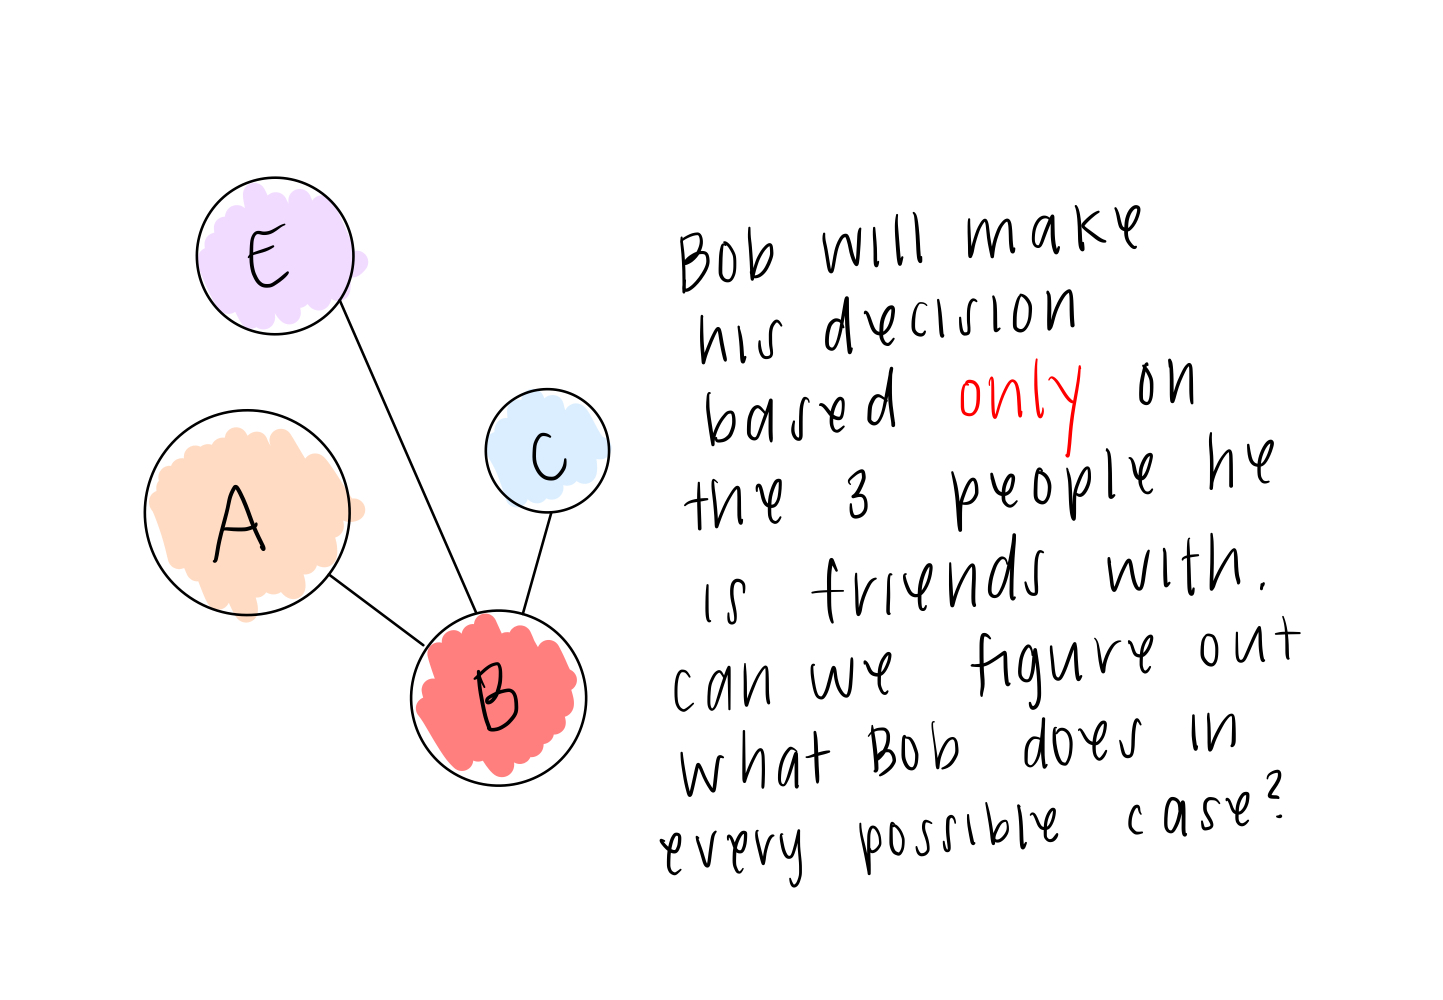 E
C
A
B
Bob will make
his decision
based only on
the 3 people he
is friends with.
can we figure out
what Bob does in
every possible case?